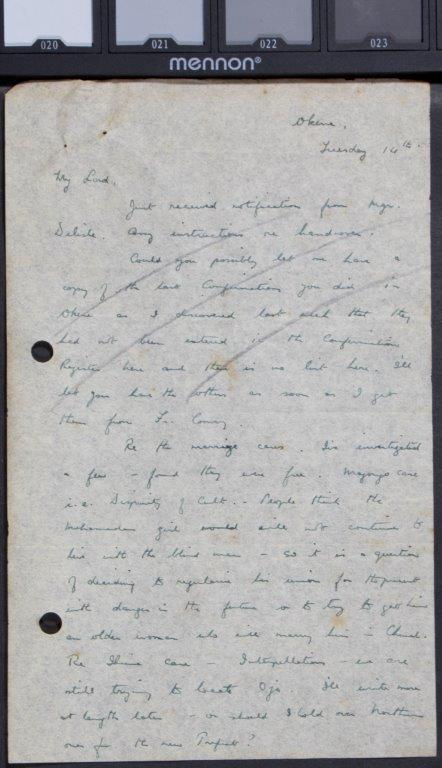 020 021 022 023
mennon®
Okene,
Tuesday 14th.
My Lord,
Just received notification from Mgr.
Deliste. Any instructions re handover.
Could you possibly let me have a
copy of the last Confirmations you did in
Okene as I discovered last week that they
had not been entered in the Confirmation
Register here and there is no list here. I'll
let you have the others as soon as I get
them from Fr.
Re the marriage cases. I've investigated
a few - found they were free. case
i.e. Disparity of Cult. - People think the
Mohamedan girl would not continue to
live with the blind man - so it is a question
of deciding to regularise his union for the present
with danger in the future or to try to get him
an older woman who will marry him in Church.
Re case - Interpellations - we are
still trying to locate Ojo. I'll write more
at length later - or should I hold over
over for the new Prefect?